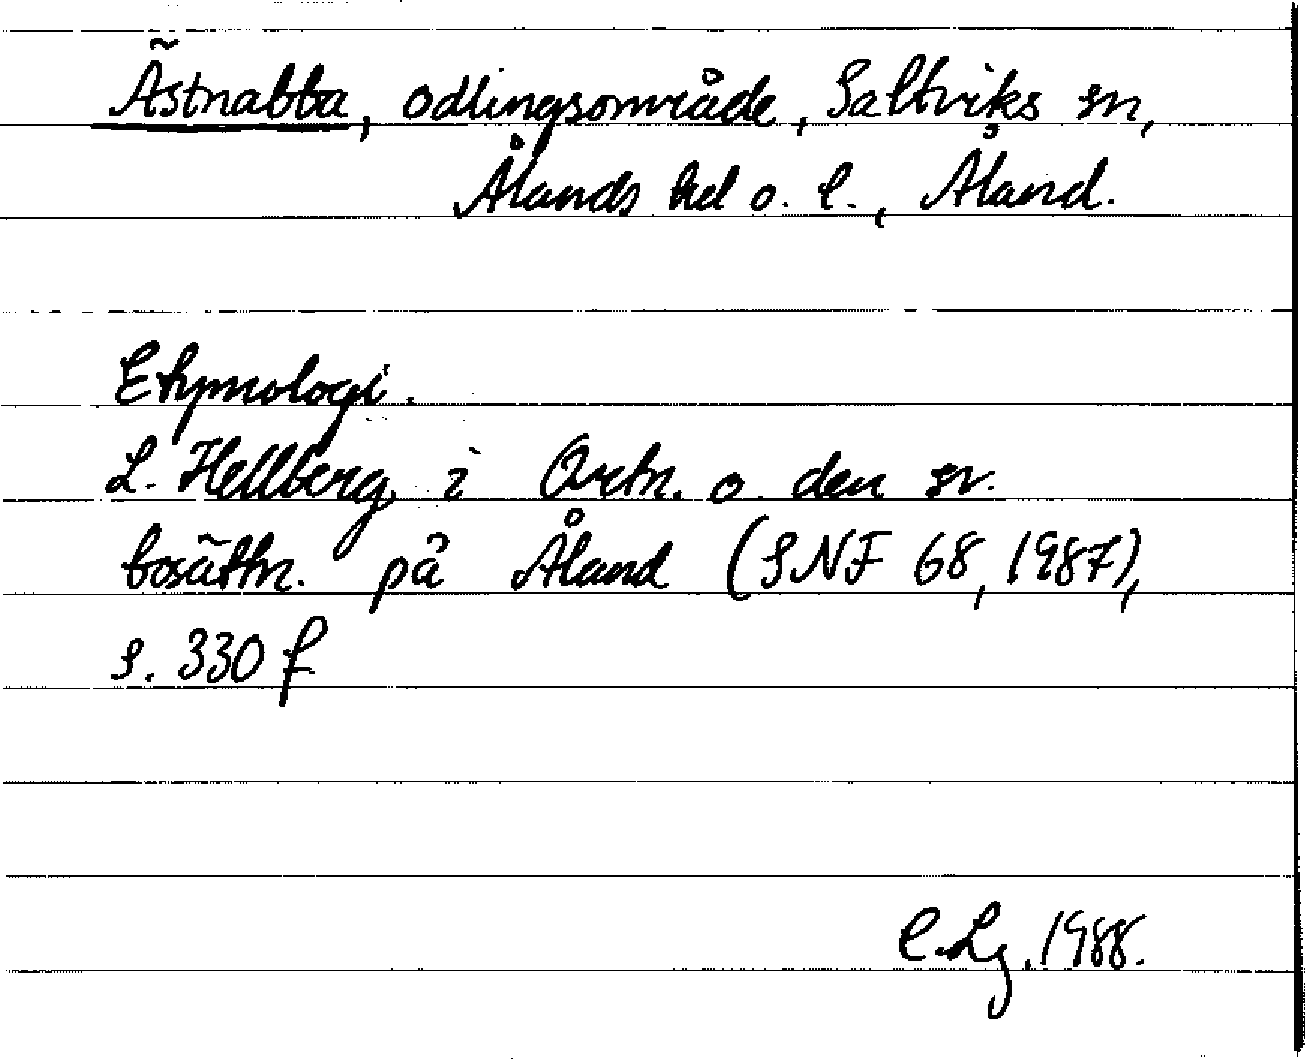 Ästnabba, odlingsområde, Saltviks sn,
Ålands hd o. l., Åland.
Etymologi.
L. Hellberg i Ortn. o. den sv.
bosättn. på Åland (SNF 68, 1987),
s. 330 f
C. Lg. 1988.